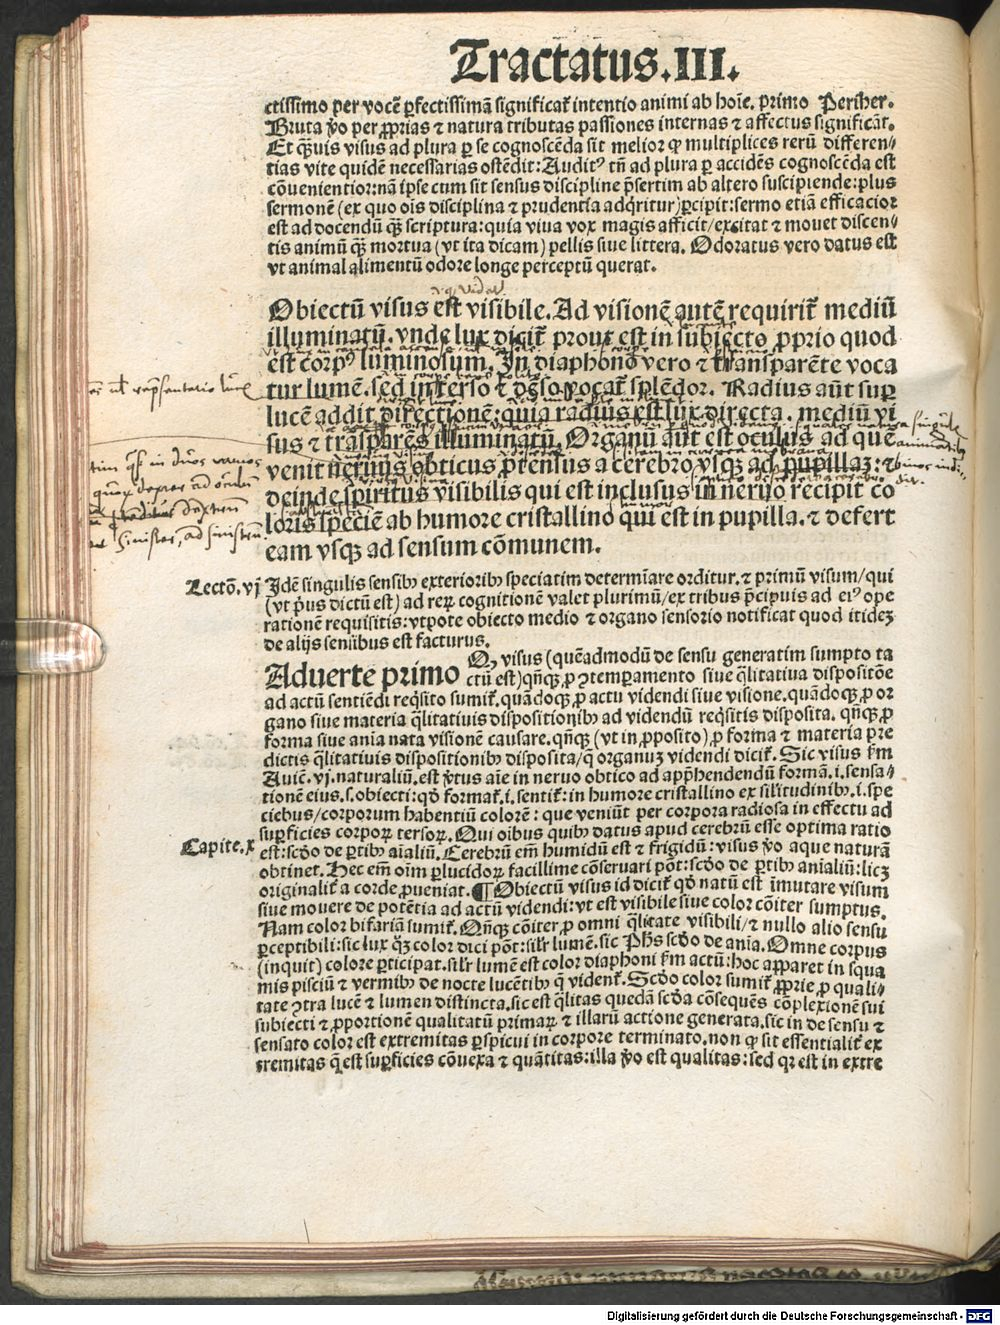 Tractatus.III.
ctissimo per vocē ꝑfectissimā significat᷑ intentio animi ab hoīe. primo Periher.
Bruta ꝟo per ꝓprias ⁊ natura tributas passiones internas ⁊ affectus significāt.
Et qȝuis visus ad plura ꝑ se cognoscēda sit melior ꝙ multiplices rerū differen/
tias vite quidē necessarias ostēdit: Auditꝰ tn̄ ad plura ꝑ accidēs cognoscēda est
cōuenientior: nā ipse cum sit sensus discipline p̄sertim ab altero suscipiende: plus
sermonē (ex quo oīs disciplina ⁊ prudentia adq̇ritur) ꝑcipit: sermo etiā efficacior
est ad docendū qȝ scriptura: quia viua vox magis afficit/ excitat ⁊ mouet discen/
tis animū qȝ mortua (vt ita dicam) pellis siue littera. Odoratus vero datus est
vt animal alimentū odore longe perceptū querat.
Obiectū visus est visibile. Ad visionē autē requirit᷑ mediū
illuminatū. vnde lux dicit᷑ prout est in subiecto ꝓprio quod
est corpꝰ luminosum. In diaphono vero ⁊ transparēte voca
tur lumē. sed in terso ⁊ dēso vocat᷑ splēdor. Radius aūt suꝑ
lucē addit directionē: quia radius est lux directa. mediū vi
sus ⁊ trāsparēs illuminatū. Organū aūt est oculus ad quē
venit neruus obticus ꝓtensus a cerebro vsqȝ ad pupillaȝ: ⁊
deinde spiritus visibilis qui est inclusus in neruo recipit co
loris speciē ab humore cristallino qui est in pupilla. ⁊ defert
eam vsqȝ ad sensum cōmunem.
Lectō.vj
Idē singulis sensibꝰ exterioribꝰ speciatim determīare ordit᷑ur. ⁊ primū visum/ qui
(vt p̄us dictū est) ad reꝝ cognitionē valet plurimū/ ex tribus p̄cipuis ad eiꝰ ope
rationē requisitis: vtpote obiecto medio ⁊ organo sensorio notificat quod itideȝ
de alijs sensibus est facturus.
Aduerte primo
Qꝫ visus (quēadmodū de sensu generatim sumpto ta
ctū est) qn̄qȝ ꝓ ꝯtemꝑamento siue q̄litatiua dispositōe
ad actū sentiēdi req̇sito sumit᷑. quādoqȝ ꝓ actu videndi siue visione. quādoqȝ ꝓ or
gano siue materia q̄litatiuis dispositionibꝰ ad videndū req̇sitis disposita. qn̄qȝ ꝓ
forma siue anīa nata visionē causare. qn̄qȝ (vt in ꝓposito) ꝓ forma ⁊ materia pre
dictis q̄litatiuis dispositionibꝰ disposita/ ꝙ organuȝ videndi dicit᷑. Sic visus ẜm
Auiē. vj. naturaliū. est ꝟtus aīe in neruo obtico ad app̄hendendū formā .i. sensa/
tionē eius .s. obiecti: qd̄ format᷑ .i. sentit᷑: in humore cristallino ex sil̄itudinibꝰ .i. spe
ciebus/ corporum habentiū colorē: que veniūt per corpora radiosa in effectu ad
suꝑficies corpoꝝ tersoꝝ. Qui oībus quibꝰ datus apud cerebrū esse optima ratio
Capite.x
est: scd̄o de ꝑtibꝰ aīaliū. Cerebrū em̄ humidū est ⁊ frigidū: visus ꝟo aque naturā
obtinet. Hec em̄ oīm ꝑlucidoꝝ facillime cōseruari pōt: scd̄o de ꝑtibꝰ anīaliū: licȝ
originalit᷑ a corde ꝓueniat. ¶ Obiectū visus id dicit᷑ qd̄ natū est īmutare visum
siue mouere de potētia ad actū videndi: vt est visibile siue color cōiter sumptus.
Nam color bifariā sumit᷑. Qn̄qȝ cōiter ꝓ omni q̄litate visibili/ ⁊ nullo alio sensu
ꝑceptibili: sic lux qȝ color dici pōt: sil̄r lumē. sic Ph̄s scd̄o de anīa. Omne corpus
(inquit) colore ꝑticipat. sil̄r lumē est color diaphoni ẜm actū: hoc apparet in squa
mis pisciū ⁊ vermibꝰ de nocte lucētibꝰ q̄ vident᷑. Scd̄o color sumit᷑ ꝓprie ꝓ quali/
tate ꝯtra lucē ⁊ lumen distincta. sic est q̄litas quedā scd̄a cōsequēs cōplexionē sui
subiecti ⁊ ꝓportionē qualitatū primaꝝ ⁊ illarū actione generata. sic in de sensu ⁊
sensato color est extremitas ꝑspicui in corpore terminato. non ꝙ sit essentialit᷑ ex
tremitas q̄ est suꝑficies cōuexa ⁊ quātitas: illa ꝟo est qualitas: sed qꝛ est in extre
Digitalisierung gefördert durch die Deutsche Forschungsgemeinschaft - DFG